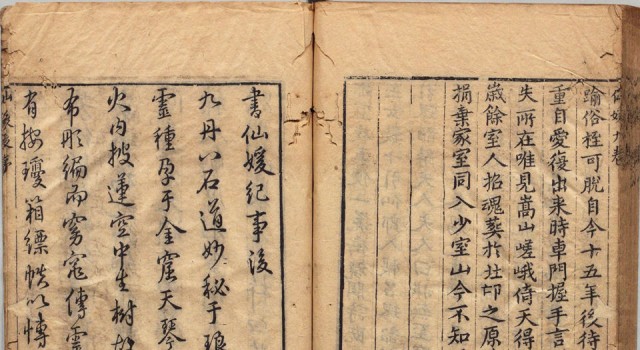 踰俗桎可脫自今十五年後待
重自愛復出来時車門握手言
失所在唯見嵩山嵯峨倚天得
歳餘室人招魂葬於北邙之原
捐棄家室同入少室山今不知
書仙媛紀事後
九丹八石道妙秘于琅
靈種孕于金窟天琴
火内蓮空中生樹故
布彤編而窈窕傳靈
按瓊箱縹帙以博